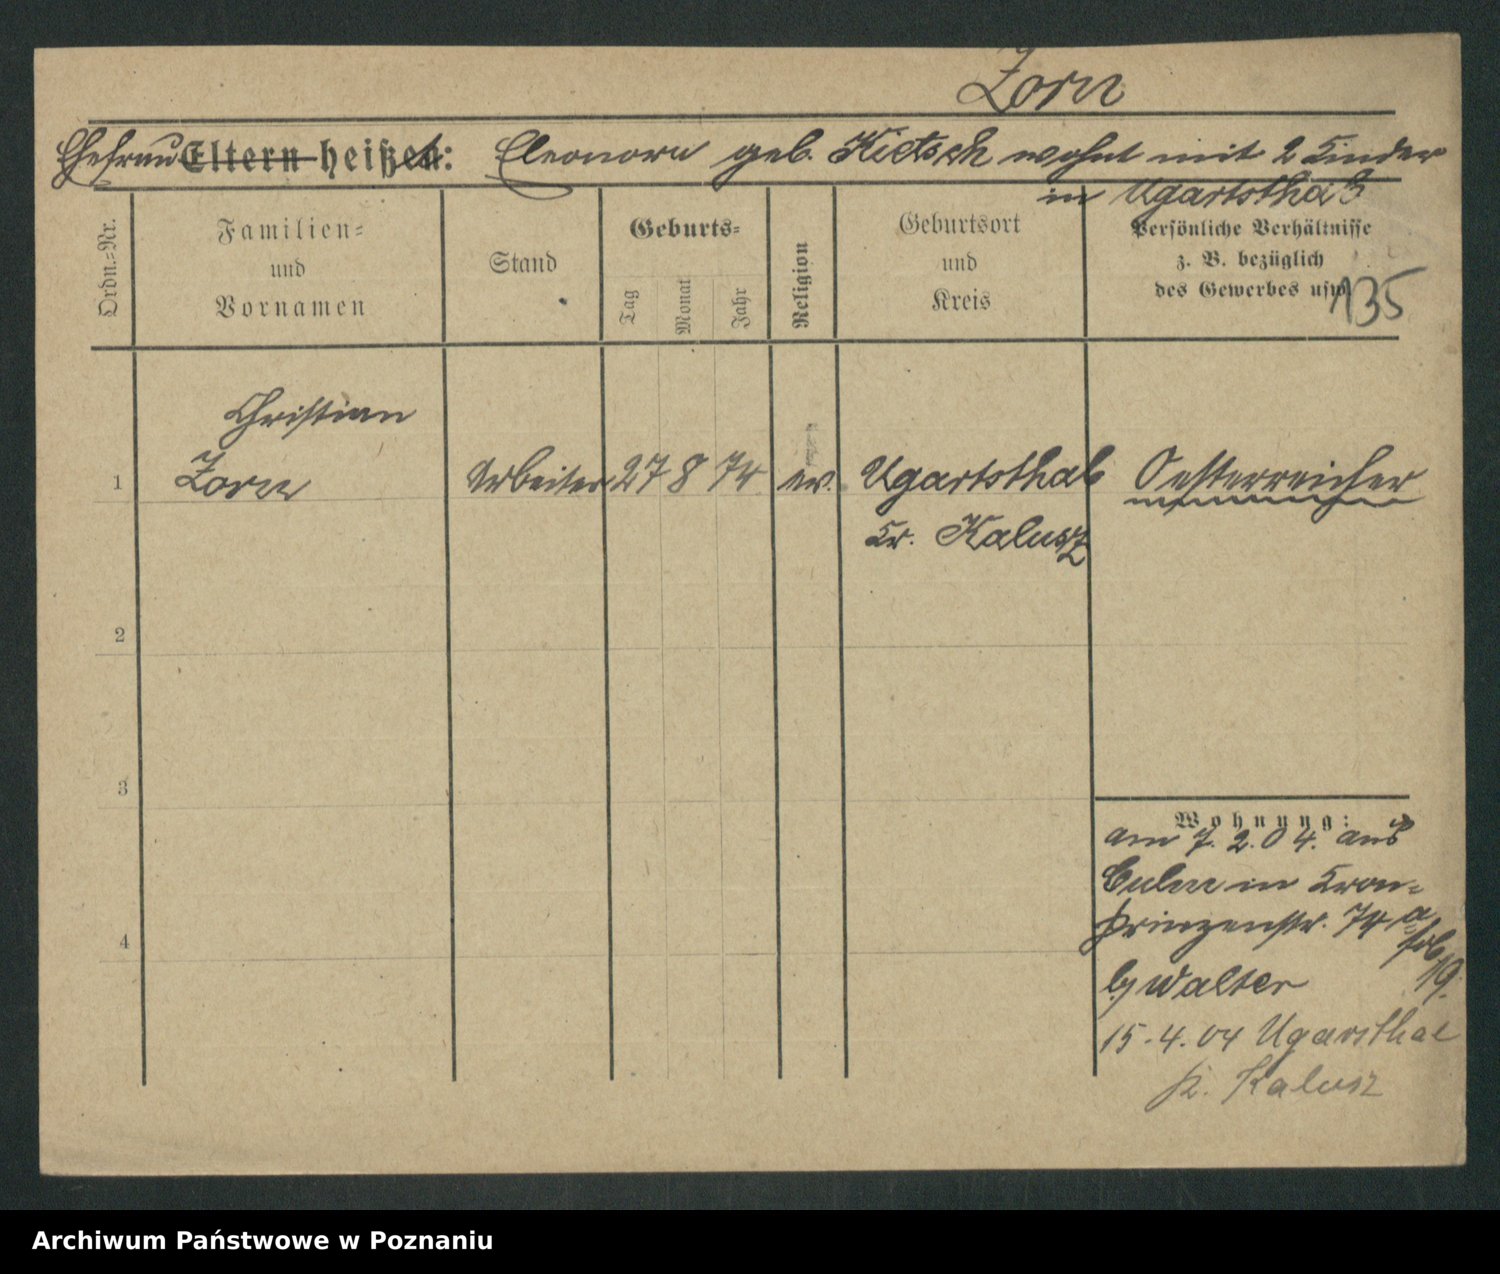 Zorn
Ehefrau Eltern heißt: Eleonora geb. Kietsch wohnt mit 2 Kinder
in Ugartsthal
Ordn.-Nr.
Familien-
und
Vornamen
Stand
Geburts-
Tag
Monat
Jahr
Religion
Geburtsort
und
Kreis
Persönliche Verhältnisse
z. B. bezüglich
des Gewerbes usw.
135
Christian
1 Zorn Arbeiter 27 8 74 ev. Ugartsthal Oesterreicher
Kr. Kalusz
2
3
4
Wohnung:
am 7. 2. 04. aus
Culm in Kron-
prinzenstr. 74 a
19.
bj Walter
15.4.04 Ugarsthal
K. Kalusz
Archiwum Państwowe w Poznaniu